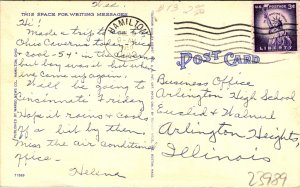 Wed.
THIS SPACE FOR WRITING MESSAGES
HAMILTON
U.S. POSTAGE 3¢
LIBERTY
POST CARD
Hi!
Made a trip thru
Ohio Caverns today. Nice
& cool - 54° in the caverns
but boy was it hot when
we came back up again
Will be going to
Cincinnati Friday
Hope it rains & cools
off a bit by then
Miss the air conditioned
office.
Helena
Business Office
Arlington High School
Euclid & Walnut
Arlington Heights,
Illinois
25989